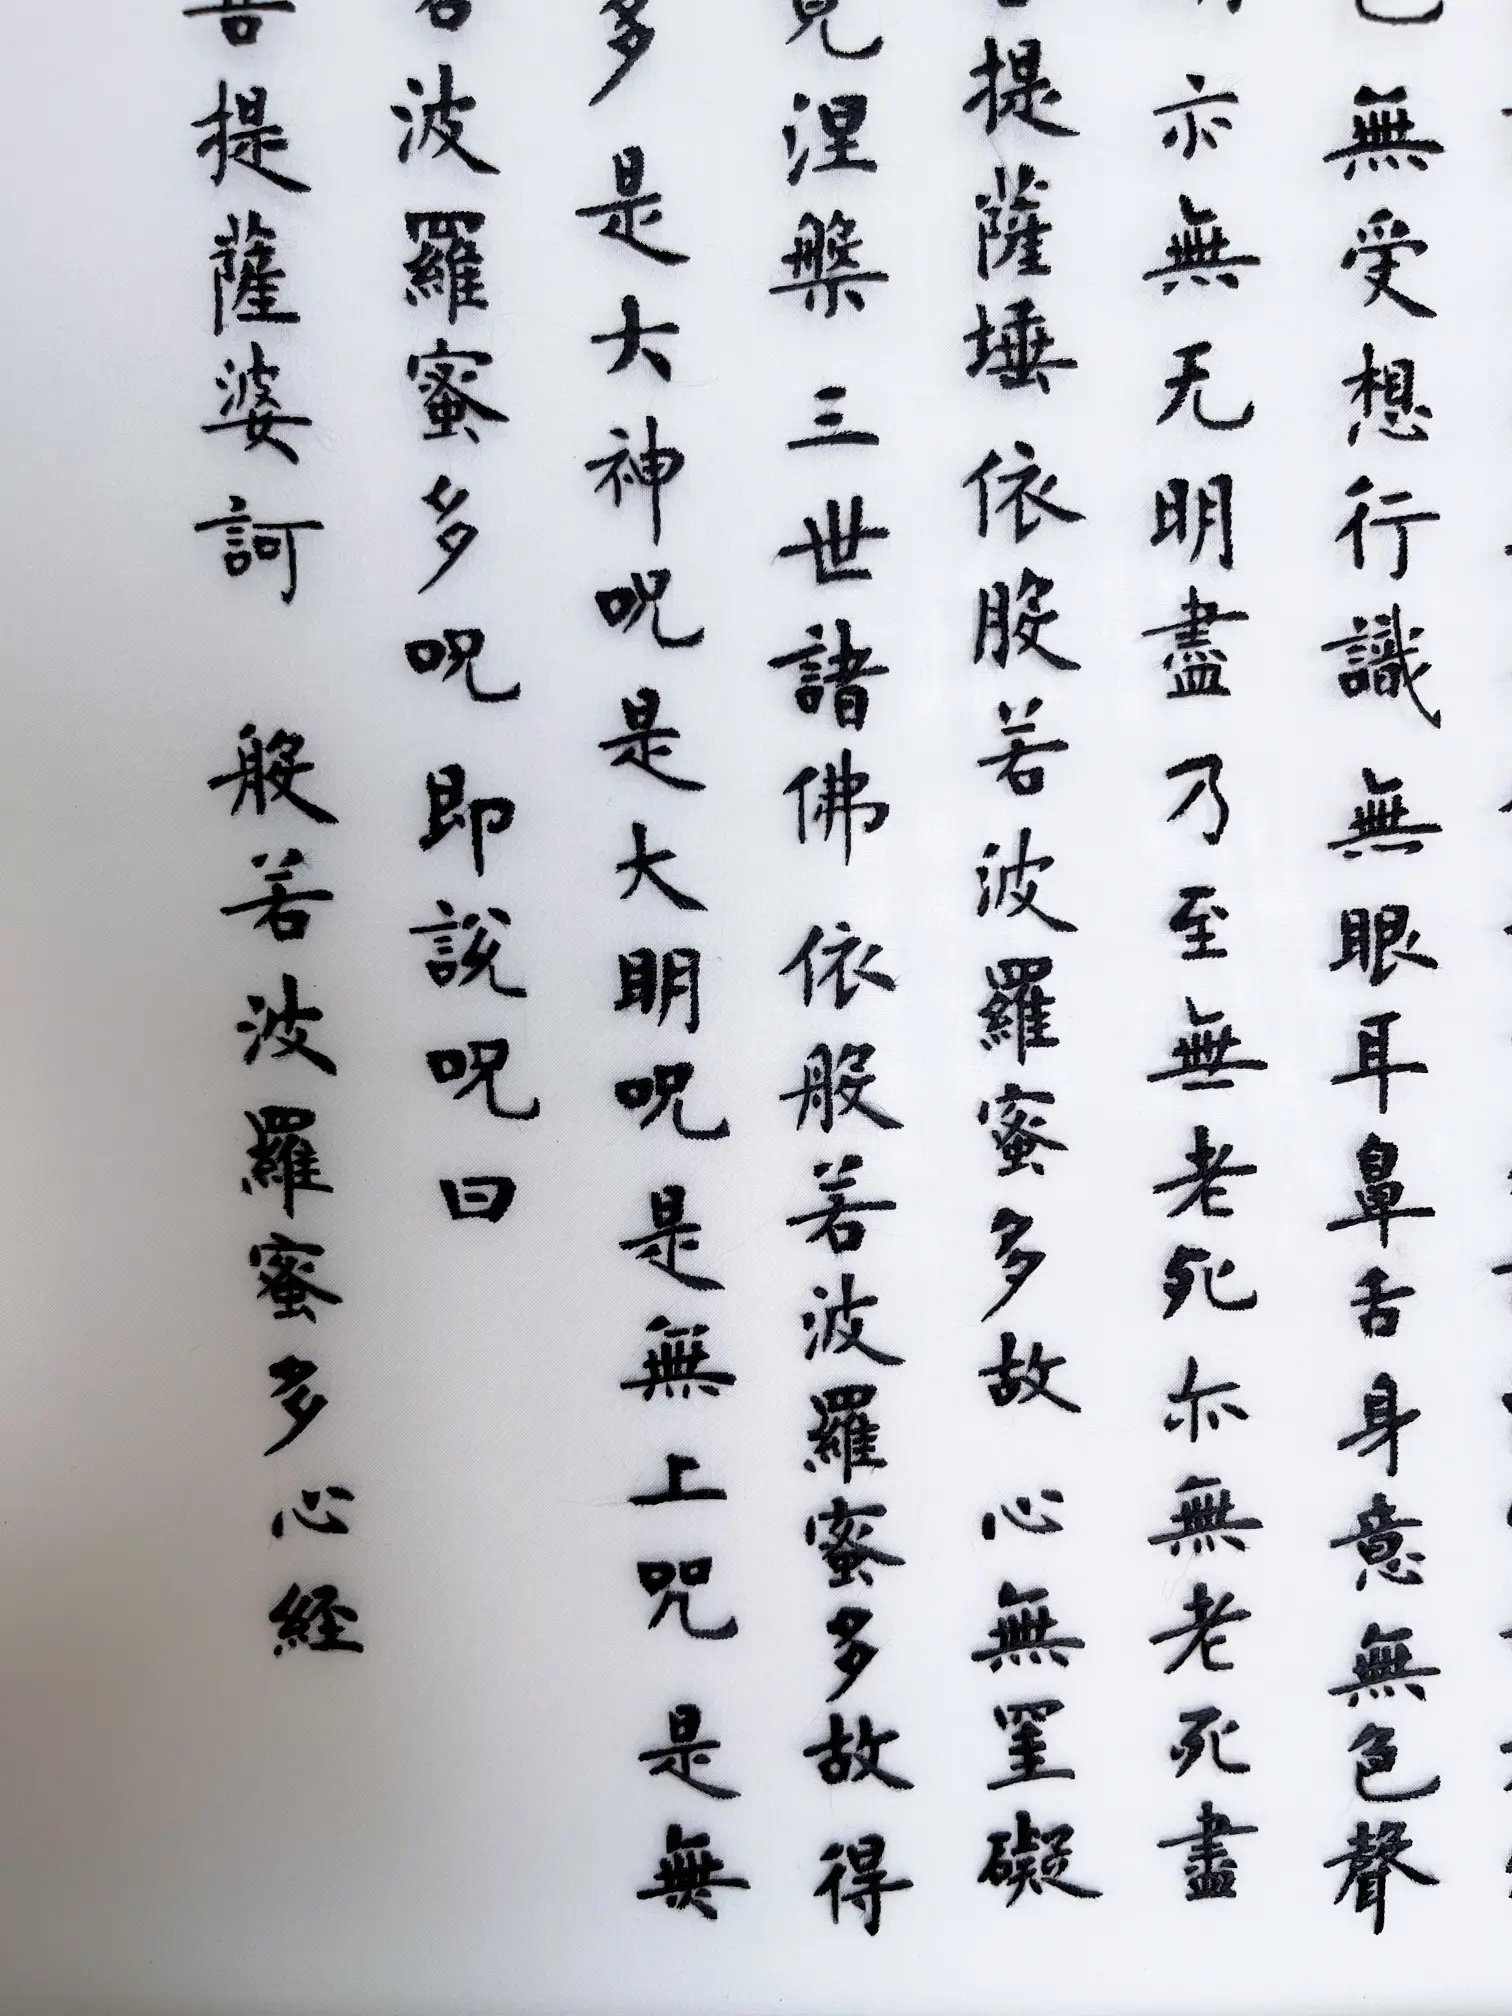 無受想行識 無眼耳鼻舌身意無色聲
亦無无明盡乃至無老死亦無老死盡
提薩埵 依般若波羅蜜多故 心無罣礙
見涅槃 三世諸佛 依般若波羅蜜多故得
多是大神呪是大明呪是無上呪 是無
若波羅蜜多呪即說呪曰
菩提薩婆訶 般若波羅蜜多心経